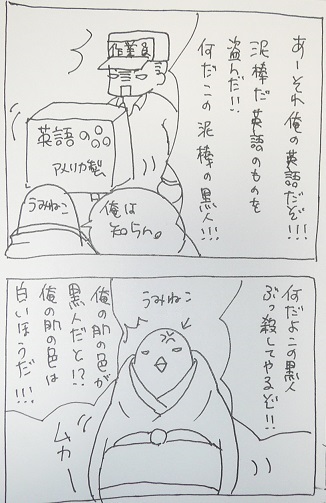 あーそれ俺の英語だぞ!!!
泥棒だ英語のものを
盗んだ!!
何だこの泥棒の黒人!!!
作業員
英語の品
アメリカ製
うみねこ
俺は
知らん。
何だよこの黒人
ぶっ殺してやるぞ!!
うみねこ
俺の肌の色が
黒人だと!?
俺の肌の色は
白いほうだ!!!
ムカー